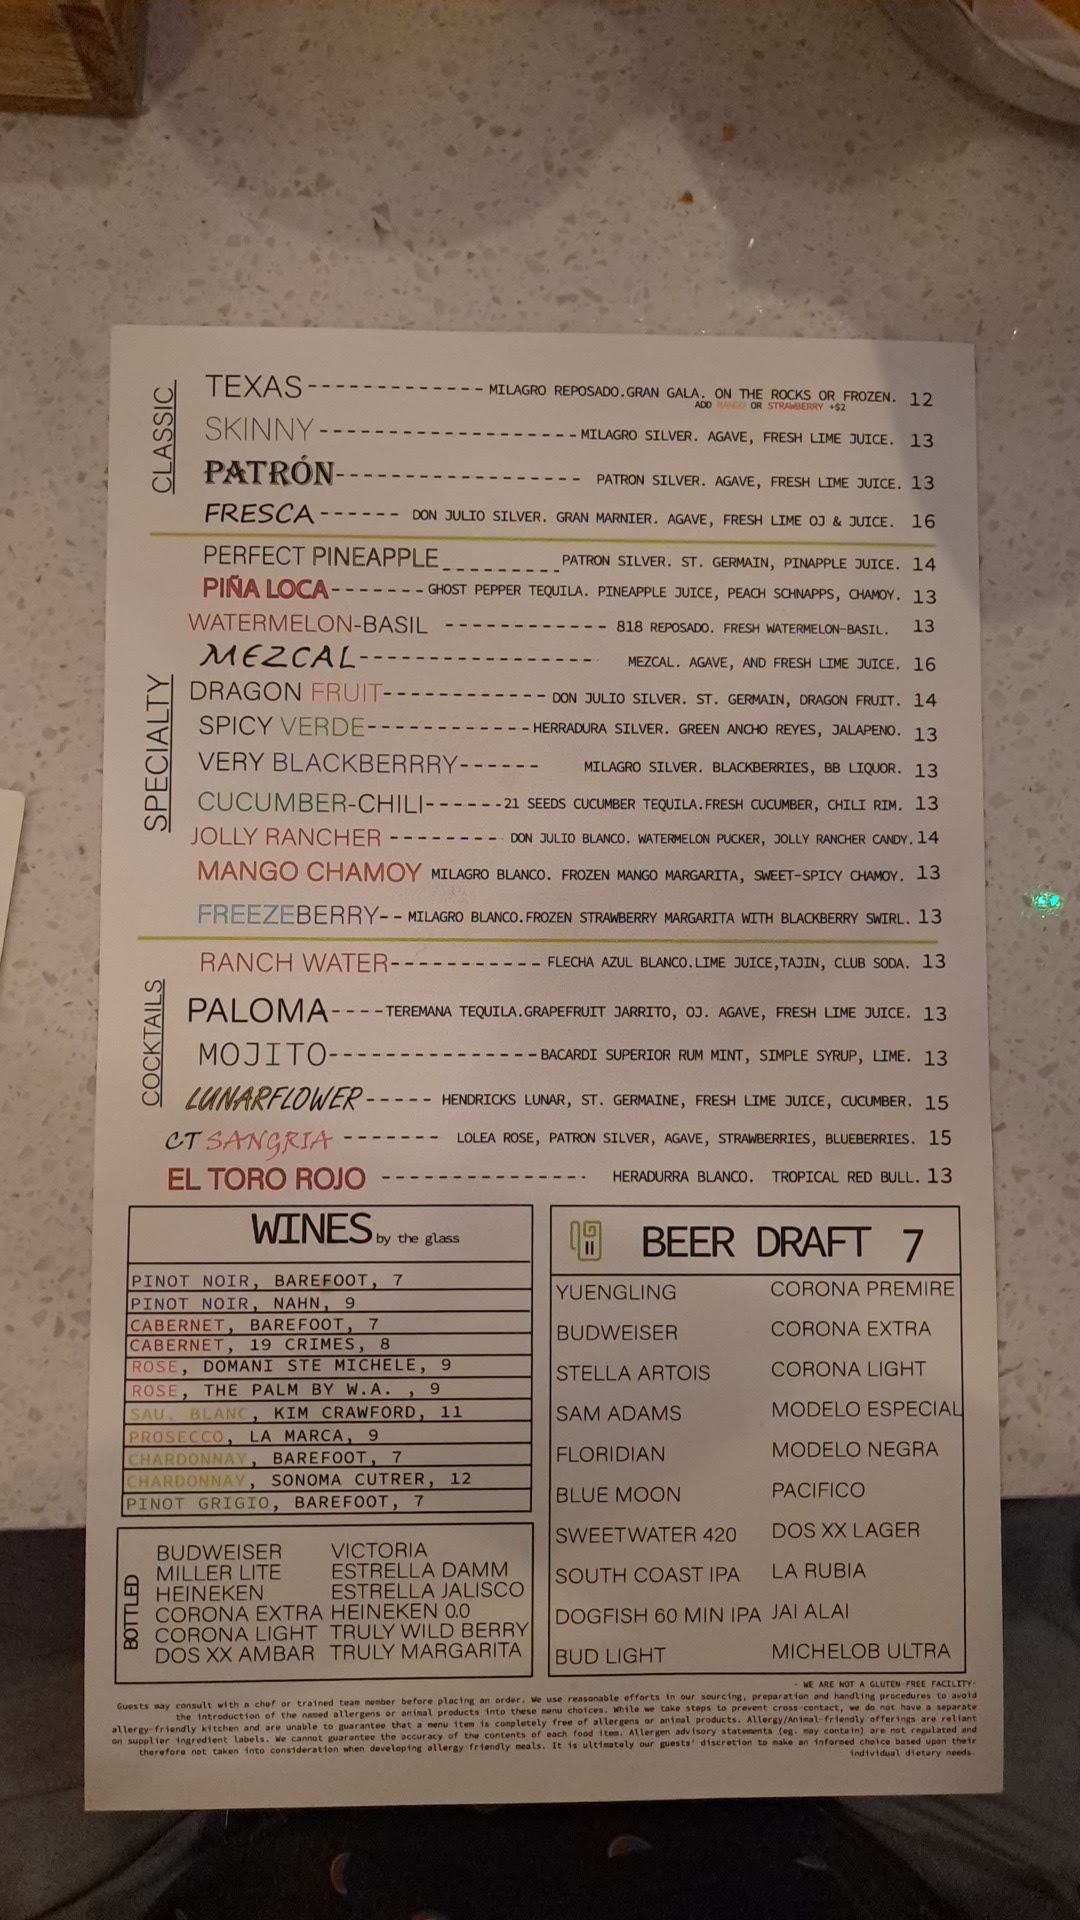 CLASSIC
TEXAS------------- MILAGRO REPOSADO.GRAN GALA. ON THE ROCKS OR FROZEN. 12
ADD MANGO OR STRAWBERRY +$2
SKINNY------------------- MILAGRO SILVER. AGAVE, FRESH LIME JUICE. 13
PATRÓN------------------ PATRON SILVER. AGAVE, FRESH LIME JUICE. 13
FRESCA------ DON JULIO SILVER. GRAN MARNIER. AGAVE, FRESH LIME OJ & JUICE. 16
SPECIALTY
PERFECT PINEAPPLE_________PATRON SILVER. ST. GERMAIN, PINAPPLE JUICE. 14
PIÑA LOCA-------GHOST PEPPER TEQUILA. PINEAPPLE JUICE, PEACH SCHNAPPS, CHAMOY. 13
WATERMELON-BASIL ------------ 818 REPOSADO. FRESH WATERMELON-BASIL. 13
MEZCAL------------------ MEZCAL. AGAVE, AND FRESH LIME JUICE. 16
DRAGON FRUIT------------ DON JULIO SILVER. ST. GERMAIN, DRAGON FRUIT. 14
SPICY VERDE------------HERRADURA SILVER. GREEN ANCHO REYES, JALAPENO. 13
VERY BLACKBERRRY------ MILAGRO SILVER. BLACKBERRIES, BB LIQUOR. 13
CUCUMBER-CHILI------21 SEEDS CUCUMBER TEQUILA.FRESH CUCUMBER, CHILI RIM. 13
JOLLY RANCHER --------- DON JULIO BLANCO. WATERMELON PUCKER, JOLLY RANCHER CANDY. 14
MANGO CHAMOY MILAGRO BLANCO. FROZEN MANGO MARGARITA, SWEET-SPICY CHAMOY. 13
FREEZEBERRY-- MILAGRO BLANCO.FROZEN STRAWBERRY MARGARITA WITH BLACKBERRY SWIRL. 13
COCKTAILS
RANCH WATER----------- FLECHA AZUL BLANCO.LIME JUICE,TAJIN, CLUB SODA. 13
PALOMA----TEREMANA TEQUILA.GRAPEFRUIT JARRITO, OJ. AGAVE, FRESH LIME JUICE. 13
MOJITO----------------BACARDI SUPERIOR RUM MINT, SIMPLE SYRUP, LIME. 13
LUNARFLOWER----- HENDRICKS LUNAR, ST. GERMAINE, FRESH LIME JUICE, CUCUMBER. 15
CT SANGRIA ------- LOLEA ROSE, PATRON SILVER, AGAVE, STRAWBERRIES, BLUEBERRIES. 15
EL TORO ROJO --------------- HERADURRA BLANCO. TROPICAL RED BULL. 13
WINES by the glass
PINOT NOIR, BAREFOOT, 7
PINOT NOIR, NAHN, 9
CABERNET, BAREFOOT, 7
CABERNET, 19 CRIMES, 8
ROSE, DOMANI STE MICHELE, 9
ROSE, THE PALM BY W.A. , 9
SAU. BLANC, KIM CRAWFORD, 11
PROSECCO, LA MARCA, 9
CHARDONNAY, BAREFOOT, 7
CHARDONNAY, SONOMA CUTRER, 12
PINOT GRIGIO, BAREFOOT, 7
BOTTLED
BUDWEISER VICTORIA
MILLER LITE ESTRELLA DAMM
HEINEKEN ESTRELLA JALISCO
CORONA EXTRA HEINEKEN 0.0
CORONA LIGHT TRULY WILD BERRY
DOS XX AMBAR TRULY MARGARITA
BEER DRAFT 7
YUENGLING CORONA PREMIRE
BUDWEISER CORONA EXTRA
STELLA ARTOIS CORONA LIGHT
SAM ADAMS MODELO ESPECIAL
FLORIDIAN MODELO NEGRA
BLUE MOON PACIFICO
SWEETWATER 420 DOS XX LAGER
SOUTH COAST IPA LA RUBIA
DOGFISH 60 MIN IPA JAI ALAI
BUD LIGHT MICHELOB ULTRA
- WE ARE NOT A GLUTEN-FREE FACILITY-
Guests may consult with a chef or trained team member before placing an order. We use reasonable efforts in our sourcing, preparation and handling procedures to avoid
the introduction of the named allergens or animal products into these menu choices. While we take steps to prevent cross-contact, we do not have a separate
allergy-friendly kitchen and are unable to guarantee that a menu item is completely free of allergens or animal products. Allergy/Animal-friendly offerings are reliant
on supplier ingredient labels. We cannot guarantee the accuracy of the contents of each food item. Allergen advisory statements (eg. may contain) are not regulated and
therefore not taken into consideration when developing allergy friendly meals. It is ultimately our guests' discretion to make an informed choice based upon their
individual dietary needs.